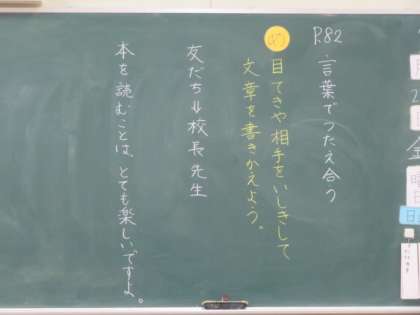 P.82 言葉でつたえ合う
め
目てきや相手をいしきして
文章を書きかえよう。
友だち⇓校長先生
本を読むことは、とても楽しいですよ。
金
日